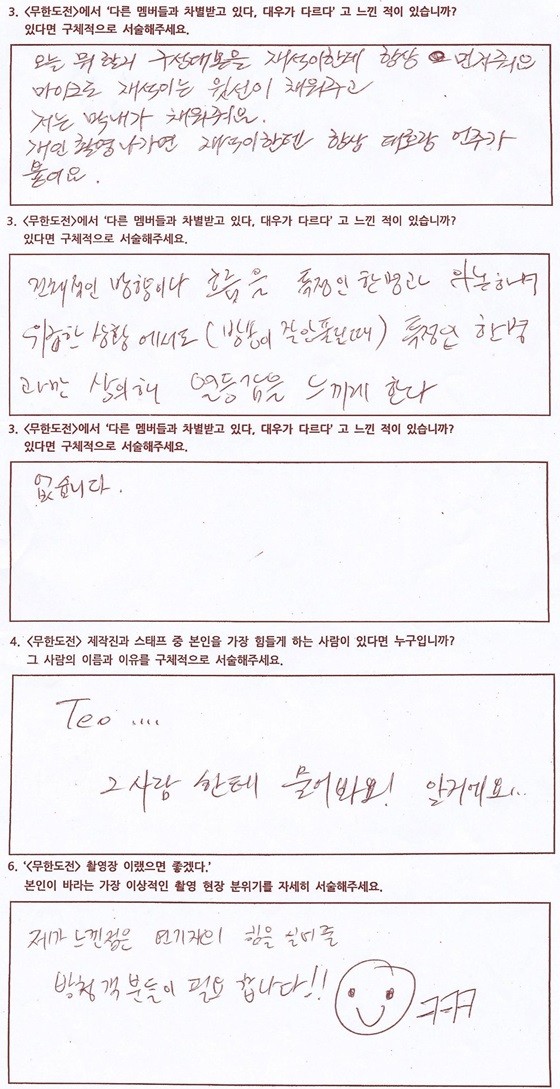 3. <무한도전>에서 '다른 멤버들과 차별받고 있다, 대우가 다르다' 고 느낀 적이 있습니까?
있다면 구체적으로 서술해주세요.
오늘 뭐 할지 구성대본을 재석이한테 항상 먼저줘요
마이크도 재석이는 윗선이 채워주고
저는 막내가 채워줘요.
개인촬영나가면 재석이한텐 항상 태호랑 언주가
붙어요.
3. <무한도전>에서 '다른 멤버들과 차별받고 있다, 대우가 다르다' 고 느낀 적이 있습니까?
있다면 구체적으로 서술해주세요.
전체적인 방향이나 흐름을 특정인 한명과 의논하며
위급한 상황에서도 (방송이 잘 안풀릴때) 특정인 한명
과만 상의해 열등감을 느끼게 한다
3. <무한도전>에서 '다른 멤버들과 차별받고 있다, 대우가 다르다' 고 느낀 적이 있습니까?
있다면 구체적으로 서술해주세요.
없습니다.
4. <무한도전> 제작진과 스태프 중 본인을 가장 힘들게 하는 사람이 있다면 누구입니까?
그 사람의 이름과 이유를 구체적으로 서술해주세요.
Teo ....
그 사람 한테 물어봐요! 알거에요...
6. '<무한도전> 촬영장 이랬으면 좋겠다.'
본인이 바라는 가장 이상적인 촬영 현장 분위기를 자세히 서술해주세요.
제가 느낀점은 연기자의 힘을 실어줄
방청객분들이 필요 합니다!! ㅋㅋㅋ